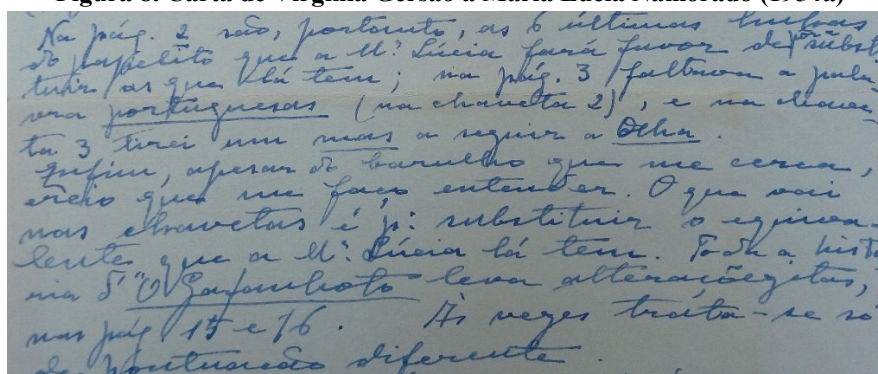 Figura 8: Carta de Virgínia Gersão a Maria Lúcia Namorado (1954a)
Na pág. 2 são, portanto, as 6 últimas linhas
do papelito que a Mª. Lúcia fará favor de subst
tuir as que lá tem; na pág. 3 faltava a pala-
vra portuguesas (na chaveta 2), e na chave-
ta 3 tirei um mas a seguir a Olha.
Enfim, apesar do barulho que me cerca,
creio que me faço entender. O que vai
nas chavetas é p: substituir o equiva-
lente que a Mª. Lúcia lá tem. Toda a histó
ria d'"O Gafanhoto leva alteraçõezitas,
nas pág. 15 e 16. Às vezes trata-se só
de pontuação diferente.